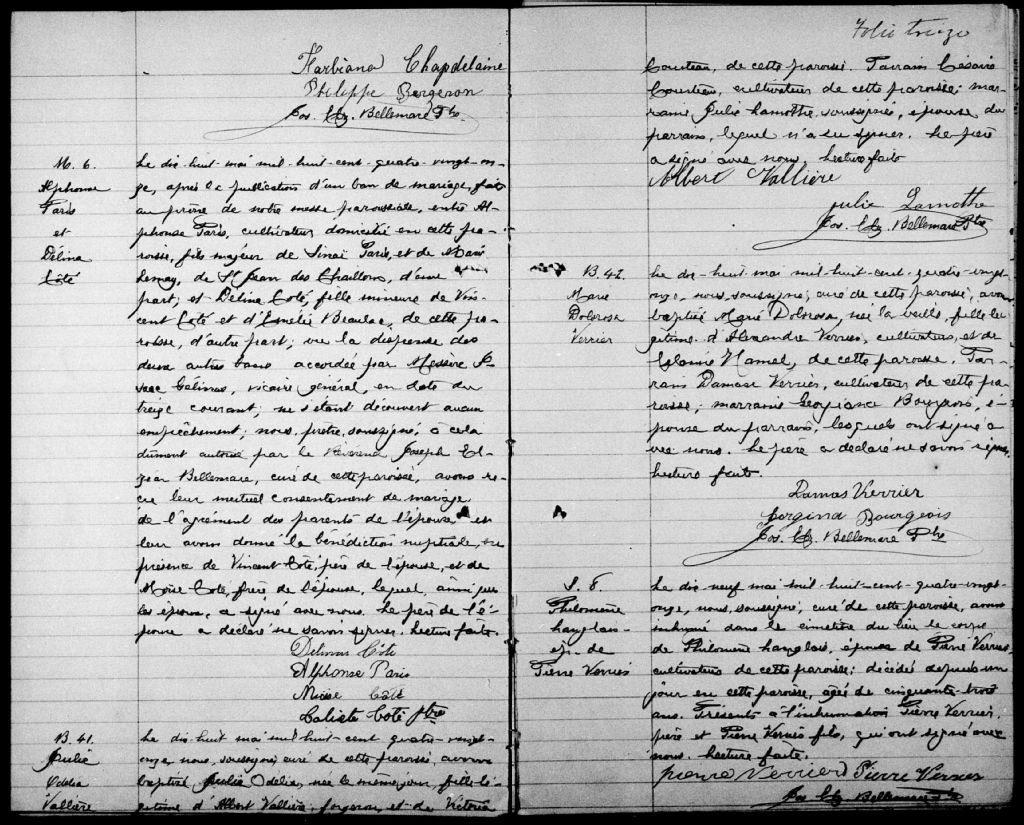 Harbiana Chapdelaine
Philippe Bergeron
Jos. Elz. Bellemare Ptre
M. 6.
Alphonse
Paris
et
Délina
Coté
Le dix-huit mai mil-huit-cent-quatre-vingt-on-
ze, après la publication d'un ban de mariage, faite
au prône de notre messe paroissiale, entre Al-
phonse Paris, cultivateur domicilié en cette pa-
roisse, fils majeur de Sinaï Paris, et de Marie
Lemay, de St Jean des Chaillons, d'une
part; et Délina Coté, fille mineure de Vin-
cent Coté et d'Emélie Beaulac, de cette pa-
roisse, d'autre part; vu la dispense des
deux autres bans accordée par Messire I-
saac Gélinas, vicaire général, en date du
treize courant; ne s'étant découvert aucun
empêchement; nous, prêtre, soussigné, à cela
dument autorisé par le Révérend Joseph El-
zéar Bellemare, curé de cette paroisse, avons re-
çu leur mutuel consentement de mariage
de l'agrément des parents de l'épouse et
leur avons donné la bénédiction nuptiale, en
présence de Vincent Coté, père de l'épouse, et de
Moïse Coté, frère de l'épouse, lequel, ainsi que
les époux, a signé avec nous. Le père de l'é-
pouse a déclaré ne savoir signer. Lecture faite.
Delima Côté
Alphonse Paris
Moïse Coté
Caliste Coté ptre
B. 41.
Julie
Odelia
Vallière
Le dix-huit mai mil huit cent quatre-vingt-
onze, nous, soussigné, curé de cette paroisse, avons
baptisé Julie Odelia, née le même jour, fille lé-
gitime d'Albert Vallière, forgeron, et de Victoria
Folio treize
de cette paroisse. Parrain Césaire
cultivateur de cette paroisse; mar-
raine Julie Lamothe, soussignée, épouse du
parrain, lequel n'a su signer. Le père
a signé avec nous. Lecture faite
Albert Vallière
Julie Lamothe
Jos. Elz. Bellemare Ptre
B. 42.
Marie
Dolorosa
Verrier
Le dix-huit mai mil-huit-cent-quatre-vingt-
onze, nous, soussigné, curé de cette paroisse, avons
baptisé Marie Dolorosa, née la veille, fille lé-
gitime d'Alexandre Verrier, cultivateur, et de
Hamel, de cette paroisse. Par-
rain Damase Verrier, cultivateur de cette pa-
roisse; marraine Georgiana Bourgeois, é-
pouse du parrain, lesquels ont signé a-
vec nous. Le père a déclaré ne savoir signer.
Lecture faite.
Damas Verrier
Gorgina Bourgeois
Jos. Elz. Bellemare Ptre
S. 8.
Philomène
Langlois
ép. de
Pierre Verrier
Le dix-neuf mai mil-huit-cent-quatre-vingt-
onze, nous, soussigné, curé de cette paroisse, avons
inhumé dans le cimetière du lieu le corps
de Philomène Langlois, épouse de Pierre Verrier,
cultivateur de cette paroisse; décédée depuis un
jour en cette paroisse, agée de cinquante-trois
ans. Présents à l'inhumation Pierre Verrier,
père et Pierre Verrier fils, qui ont signé avec
nous. Lecture faite.
Pierre Verrier Pierre Verrier
Jos. Elz. Bellemare Ptre